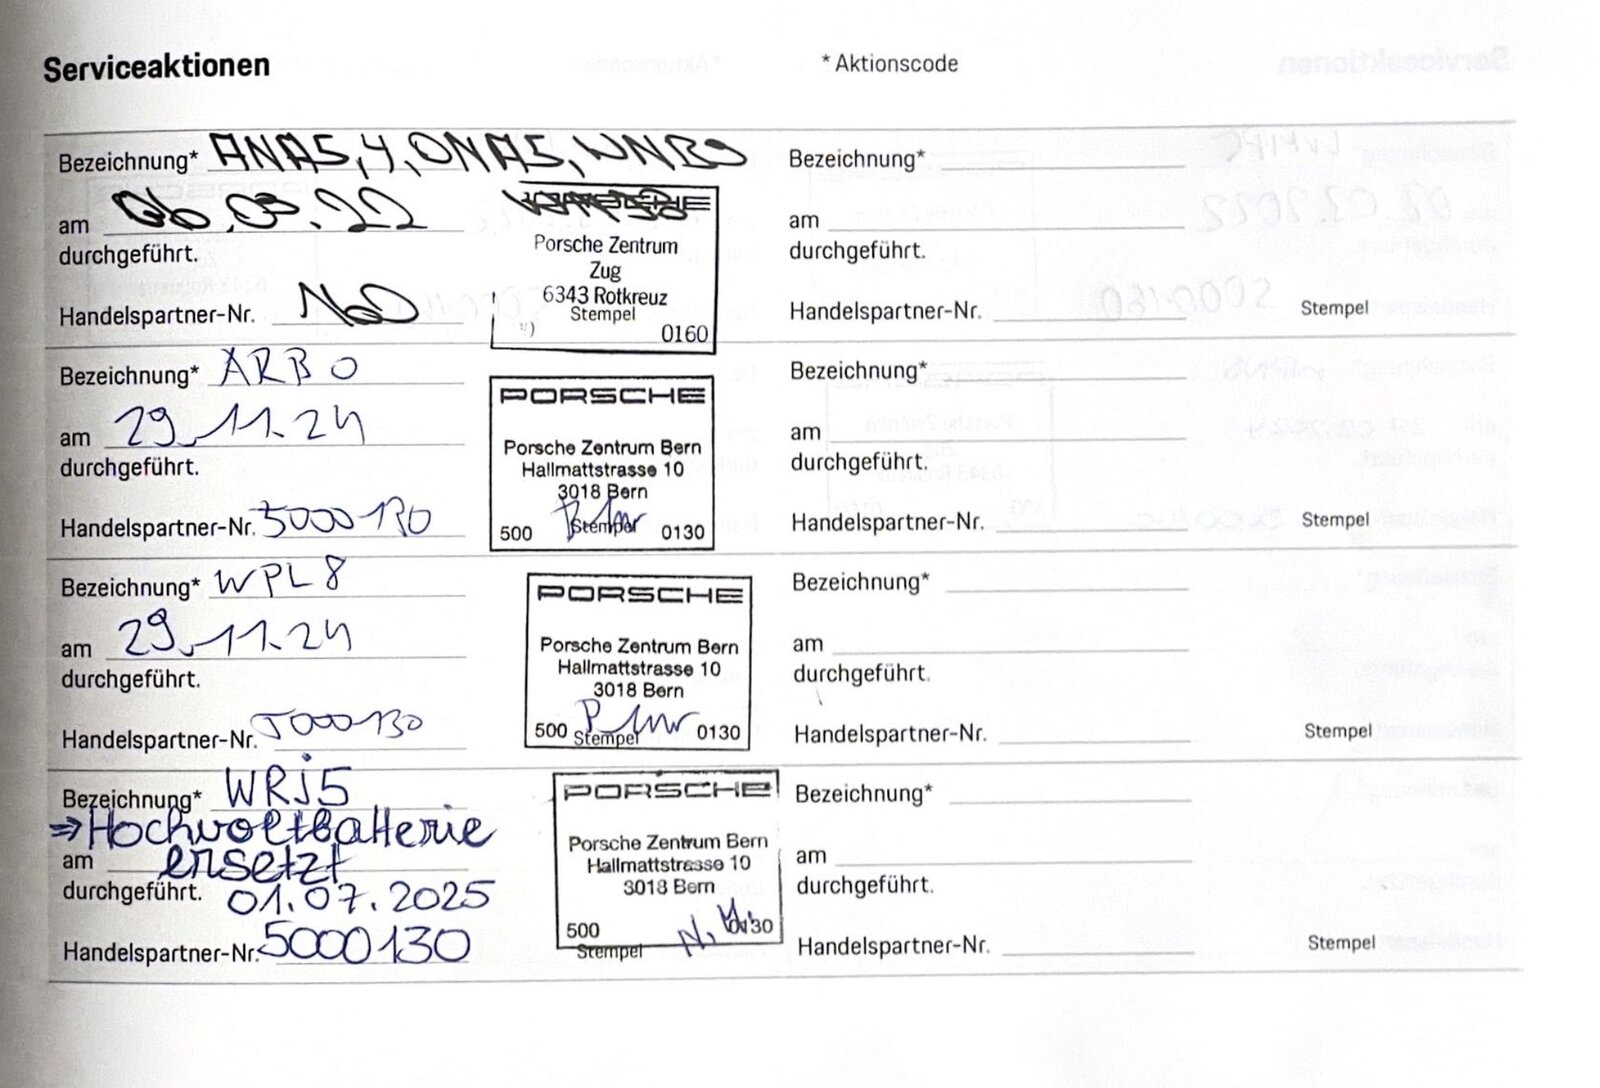 Serviceaktionen
* Aktionscode
Bezeichnung* ANA5, 4, ONA5, WNB
am 06.03.22
durchgeführt.
Handelspartner-Nr.
Porsche Zentrum
Zug
6343 Rotkreuz
Stempel
0160
Bezeichnung* ARB0
am 29.11.24
durchgeführt.
Handelspartner-Nr. 5000130
PORSCHE
Porsche Zentrum Bern
Hallmattstrasse 10
3018 Bern
Stempel
500 0130
Bezeichnung* WPL8
am 29.11.24
durchgeführt.
Handelspartner-Nr. 5000130
PORSCHE
Porsche Zentrum Bern
Hallmattstrasse 10
3018 Bern
500 0130
Stempel
Bezeichnung* WRJ5
⇒ Hochvoltbatterie
am ersetzt
durchgeführt. 01.07.2025
Handelspartner-Nr. 5000130
PORSCHE
Porsche Zentrum Bern
Hallmattstrasse 10
3018 Bern
500 0130
Stempel
Bezeichnung*
am
durchgeführt.
Handelspartner-Nr.
Stempel
Bezeichnung*
am
durchgeführt.
Handelspartner-Nr.
Stempel
Bezeichnung*
am
durchgeführt.
Handelspartner-Nr.
Stempel
Bezeichnung*
am
durchgeführt.
Handelspartner-Nr.
Stempel